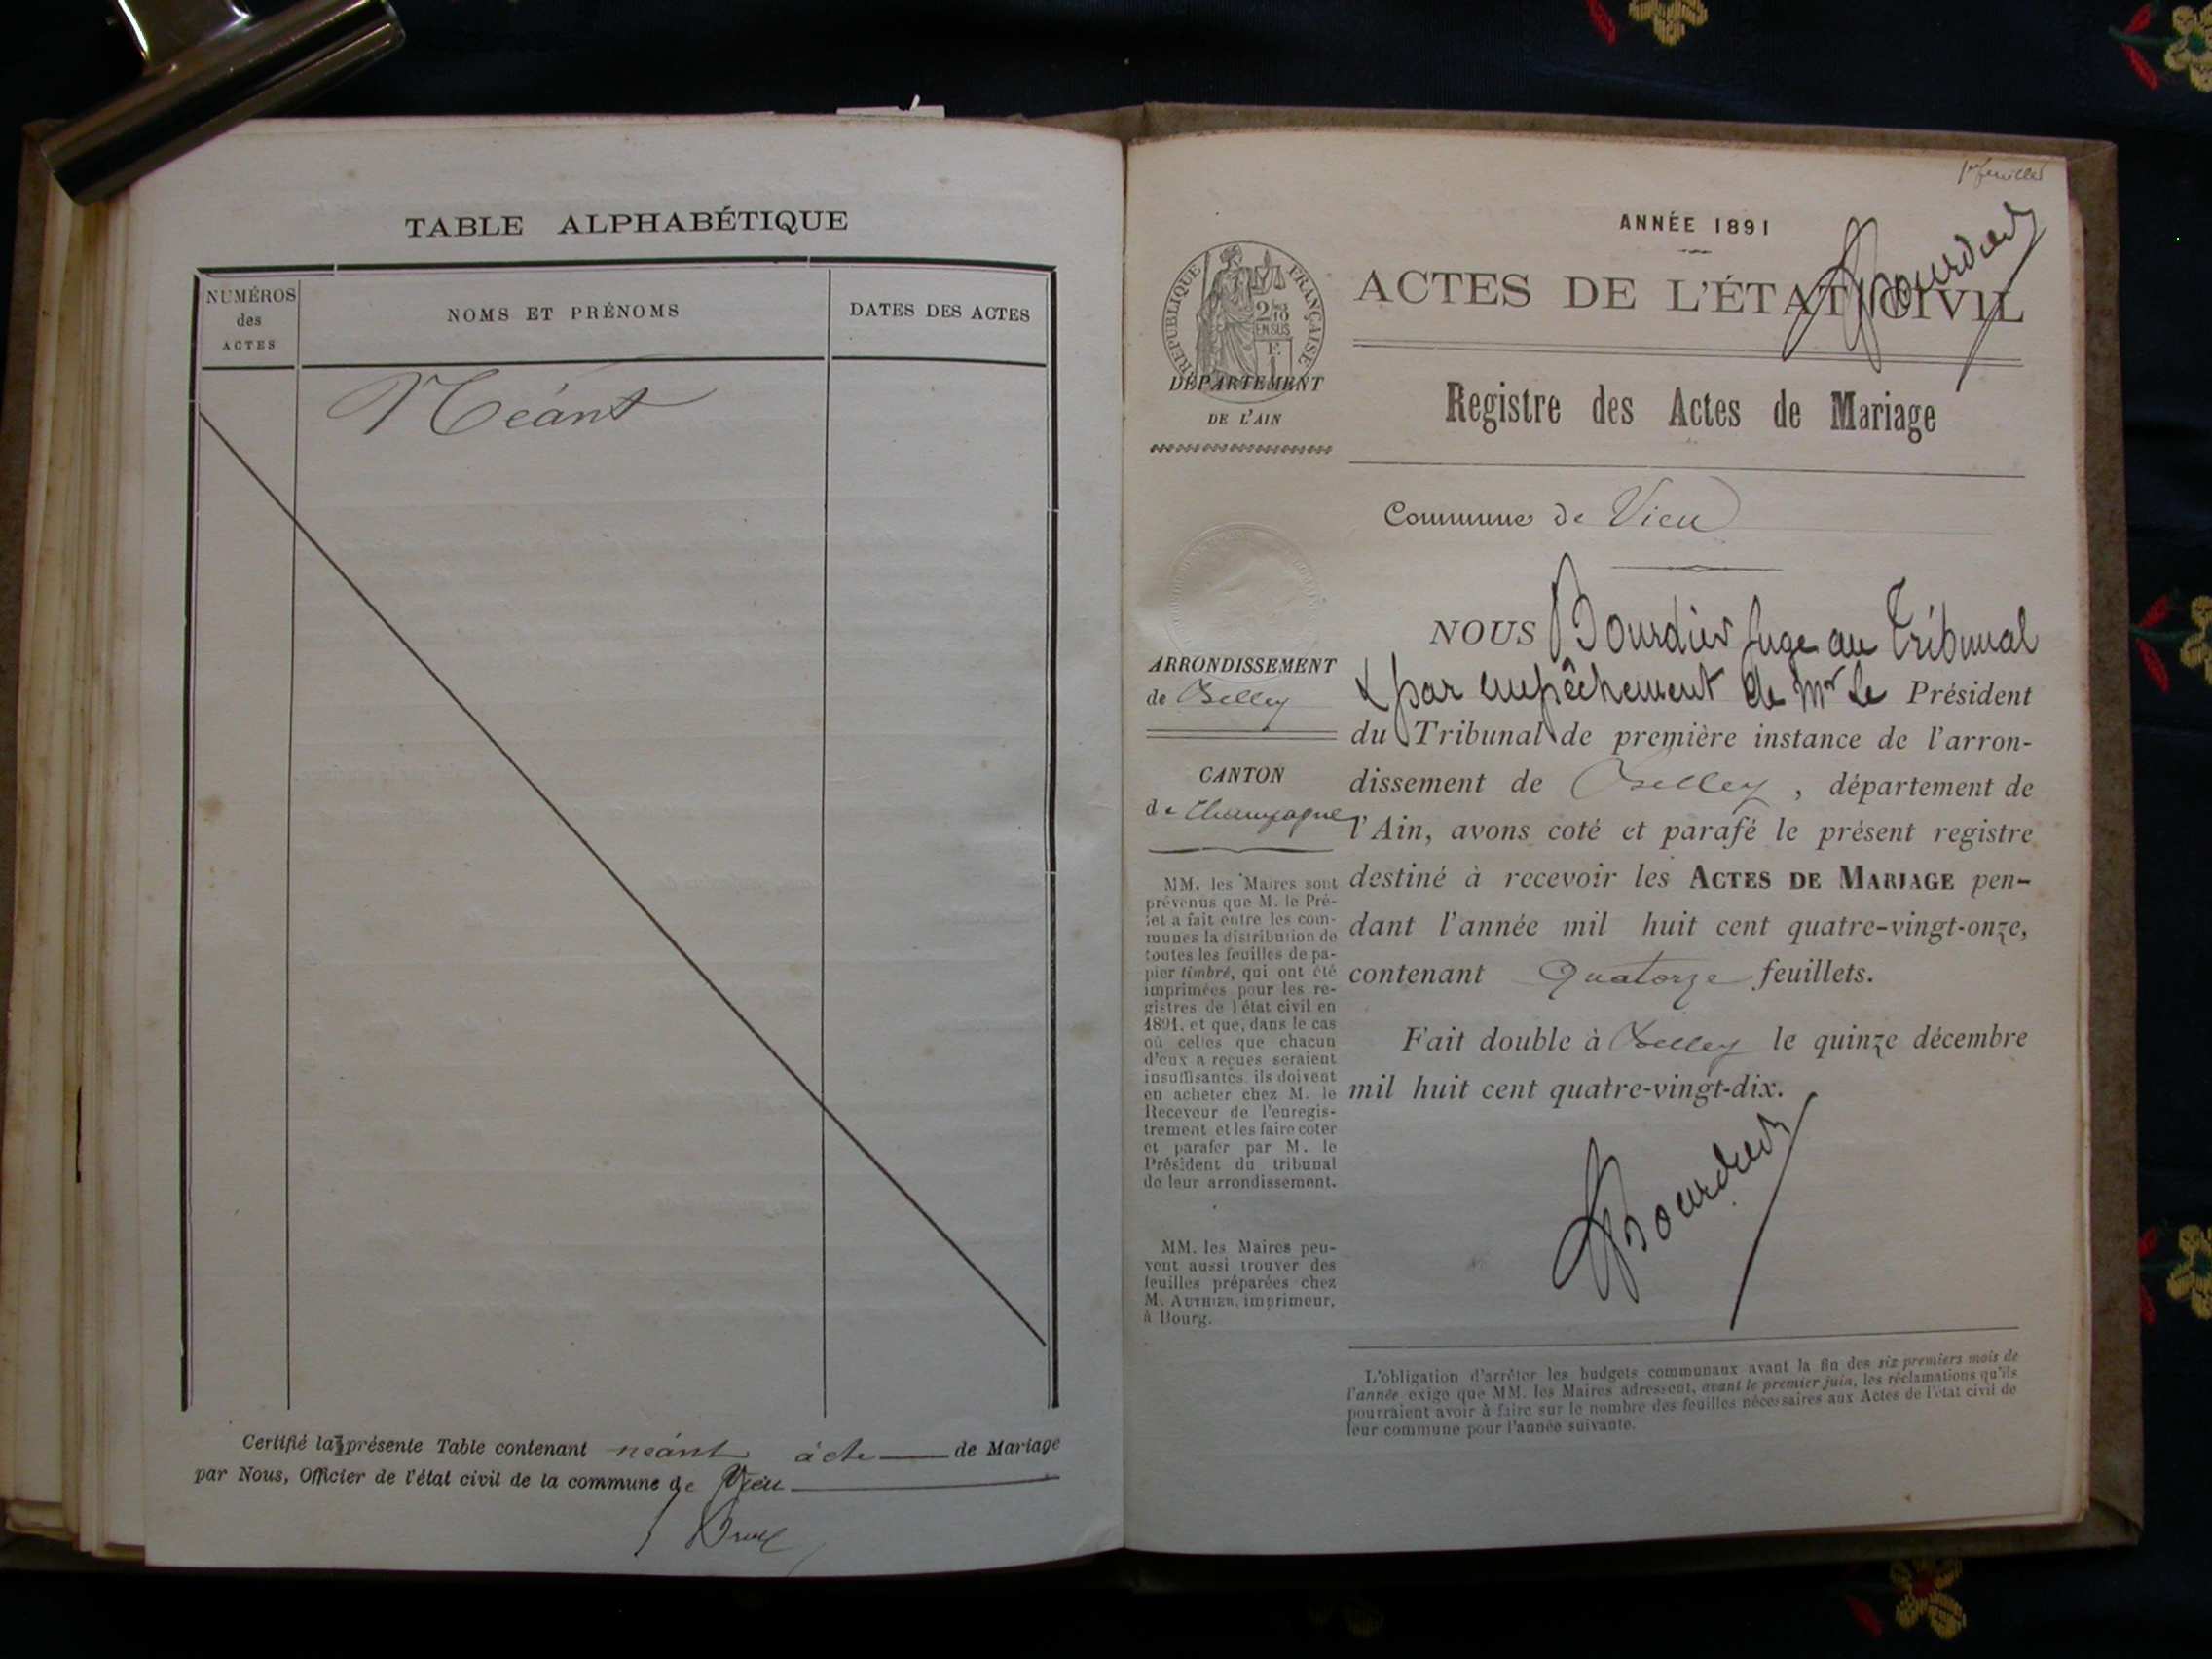 TABLE ALPHABÉTIQUE
NUMÉROS
des
ACTES
NOMS ET PRÉNOMS
DATES DES ACTES
Néant
Certifié la présente Table contenant néant acte de Mariage
par Nous, Officier de l'état civil de la commune de Vieu
1er feuillet
ANNÉE 1891
Bourdier
ACTES DE L'ÉTAT CIVIL
RÉPUBLIQUE FRANÇAISE
2/10
EN SUS
1 F.
DÉPARTEMENT
DE L'AIN
Registre des Actes de Mariage
Commune de Vieu
ARRONDISSEMENT
de Belley
CANTON
de Champagne
MM. les Maires sont
prévenus que M. le Pré-
fet a fait entre les com-
munes la distribution de
toutes les feuilles de pa-
pier timbré, qui ont été
imprimées pour les re-
gistres de l'état civil en
1891, et que, dans le cas
où celles que chacun
d'eux a reçues seraient
insuffisantes, ils doivent
en acheter chez M. le
Receveur de l'enregis-
trement et les faire coter
et parafer par M. le
Président du tribunal
de leur arrondissement.
MM. les Maires peu-
vent aussi trouver des
feuilles préparées chez
M. AUTHIER, imprimeur,
à Bourg.
NOUS Bourdier Juge au Tribunal
& par empêchement de Mr le Président
du Tribunal de première instance de l'arron-
dissement de Belley, département de
l'Ain, avons coté et parafé le présent registre
destiné à recevoir les ACTES DE MARIAGE pen-
dant l'année mil huit cent quatre-vingt-onze,
contenant quatorze feuillets.
Fait double à Belley le quinze décembre
mil huit cent quatre-vingt-dix.
Bourdier
L'obligation d'arrêter les budgets communaux avant la fin des six premiers mois de
l'année exige que MM. les Maires adressent, avant le premier juin, les réclamations qu'ils
pourraient avoir à faire sur le nombre des feuilles nécessaires aux Actes de l'état civil de
leur commune pour l'année suivante.